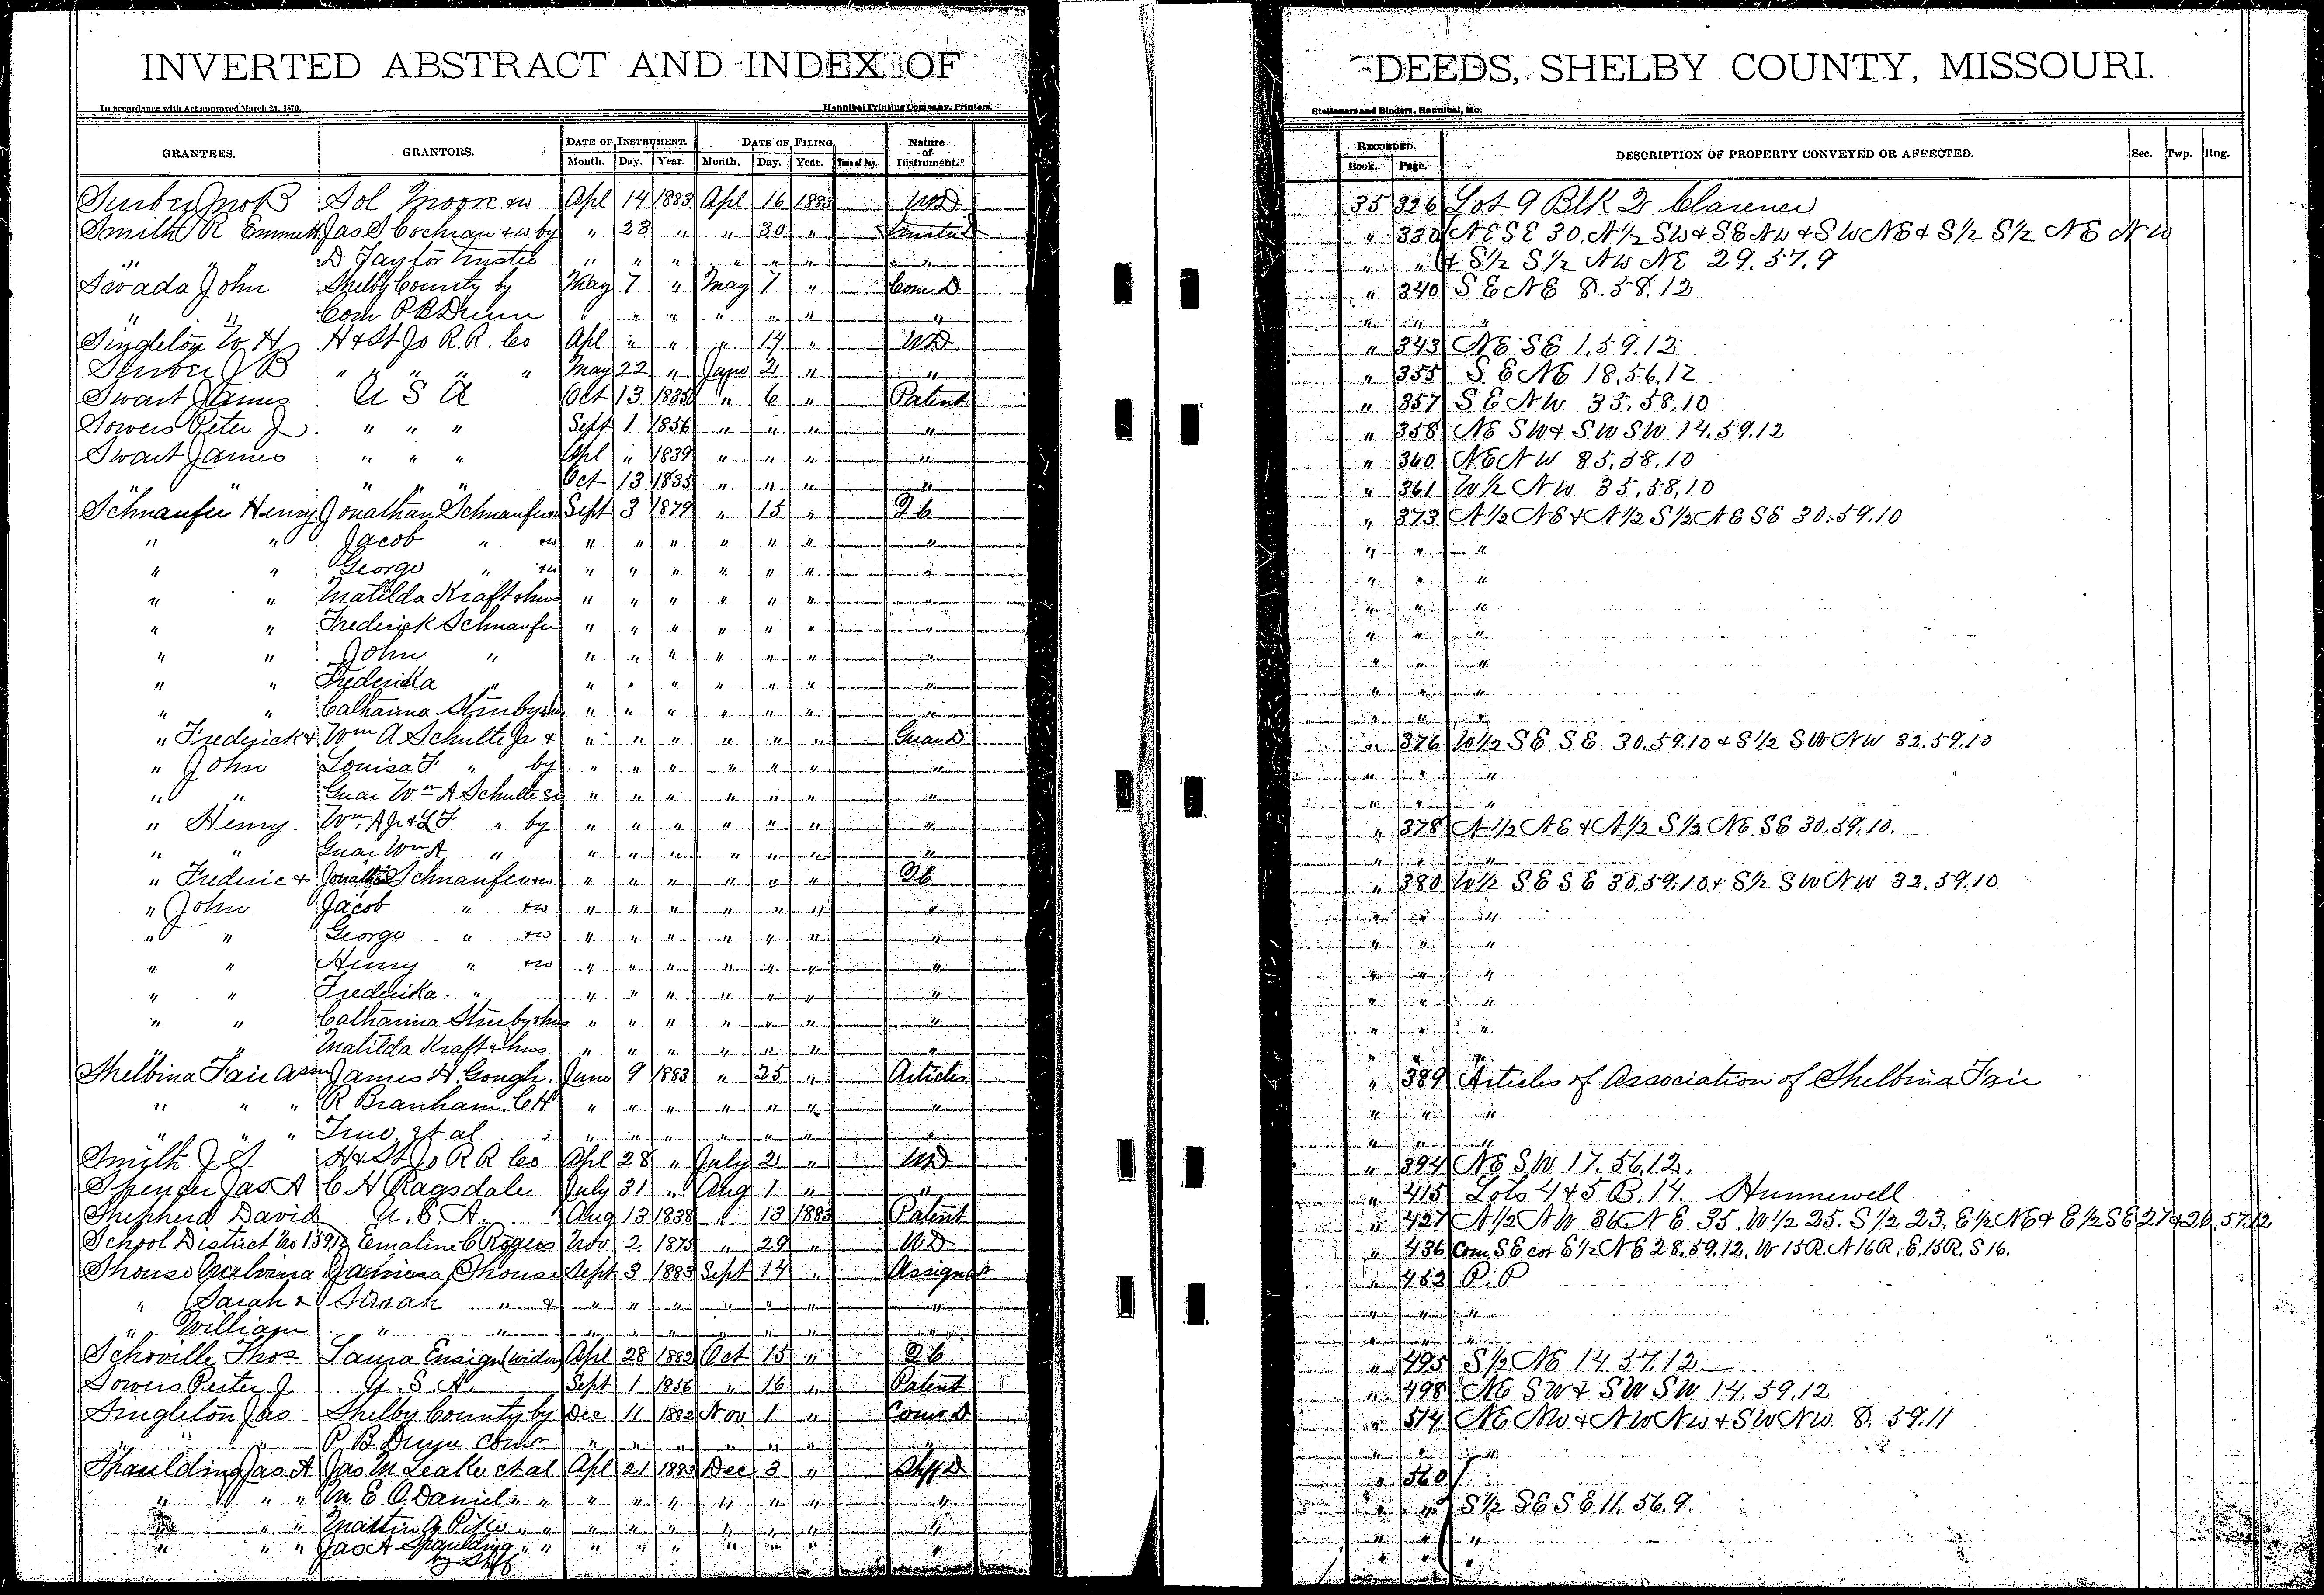 INVERTED ABSTRACT AND INDEX OF DEEDS, SHELBY COUNTY, MISSOURI.
In accordance with Act approved March 25, 1870. Hannibal Printing Company, Printers, Stationers and Binders, Hannibal, Mo.
GRANTEES. GRANTORS. DATE OF INSTRUMENT. DATE OF FILING. Nature of Instrument. RECORDED. DESCRIPTION OF PROPERTY CONVEYED OR AFFECTED. Sec. Twp. Rng.
Month. Day. Year. Month. Day. Year. Time of Day. Book. Page.
Sol Moore Apl 14 1883 Apl 16 1883 WD 35 326 Lot 9 Blk 2 Clarence
Smith R Emmett Jas S Cochran & w by " 23 " " 30 " Trustee D " 330 NE SE 30, N½ SW & SE NW & SW NE & S½ S½ NE NW
" " D Taylor trustee " " " " " " " " " & S½ S½ NW NE 29.57.9
Swada John Shelby County by May 7 " May 7 " Com. D " 340 SE NE 8.58.12
" " Com P B Dunn " " " " " " " " " "
Singleton W H H & St Jo R.R. Co Apl " " " 14 " WD " 343 NE SE 1.59.12
J B " " " " May 22 " June 2 " " " 355 SE NE 18.56.12
Swart James U S A Oct 13 1835 " 6 " Patent " 357 SE NW 35.58.10
Sowers Peter J " " " Sept 1 1856 " " " " " 358 NE SW & SW SW 14.59.12
Swart James " " " Apl " 1839 " " " " " 360 NE NW 35.58.10
" " " " " Oct 13 1835 " " " " " 361 W½ NW 35.58.10
Schnaufer Henry Jonathan Schnaufer Sept 3 1879 " 15 " Q C " 373 N½ NE & N½ S½ NE SE 30.59.10
" " Jacob " & w " " " " " " " " " "
" " George " & w " " " " " " " " " "
" " Matilda Kraft & hus " " " " " " " " " "
" " Frederick Schnaufer " " " " " " " " " "
" " John " " " " " " " " " " "
" " Fredericka " " " " " " " " " " "
" " Catharina & hus " " " " " " " " " "
" Frederick & Wm A Schulte Jr & " " " " " " Guar D " 376 W½ SE SE 30.59.10 & S½ SW NW 32.59.10
" John Louisa F. " by " " " " " " " " " "
" " Guar Wm A Schulte Sr " " " " " " " " " "
" Henry Wm A Jr & L F. " by " " " " " " " " 378 N½ NE & N½ S½ NE SE 30.59.10.
" " Guar Wm A " " " " " " " " " " "
" Frederic & Jonathan Schnaufer & w " " " " " " Q C " 380 W½ SE SE 30.59.10 & S½ SW NW 32.59.10
" John Jacob " & w " " " " " " " " " "
" " George " & w " " " " " " " " " "
" " Henry " & w " " " " " " " " " "
" " Fredericka " " " " " " " " " " "
" " Catharina & hus " " " " " " " " " "
" " Matilda Kraft & hus " " " " " " " " " "
Shelbina Fair Assn James H. Gough, June 9 1883 " 25 " Articles " 389 Articles of Association of Shelbina Fair
" " " R Branham, C H " " " " " " " " " "
" " " True, et al " " " " " " " " " "
Smith J H & St Jo R R Co Apl 28 " July 2 " WD " 394 NE SW 17.56.12.
Spencer Jas A C H Ragsdale July 31 " Aug 1 " " " 415 Lots 4 & 5 B. 14. Hunnewell
Shepherd David U. S. A. Aug 13 1838 " 13 1883 Patent " 427 N½ NW 36 NE 35. W½ 25. S½ 23. E½ NE & E½ SE 27 & 26, 57.12
School District No 1 59 12 Emaline C Rogers Nov 2 1875 " 29 " W D " 436 Com SE cor E½ NE 28.59.12. W 15R. N 16R. E. 15R. S 16.
Shouse Shouse Sept 3 1883 Sept 14 " " 453 P. P
" Sarah & " & " " " " " " " " " "
" William " " " " " " " " " " " "
Schoville Thos Laura Ensign (widow) Apl 28 1883 Oct 15 " Q C " 495 S½ NE 14.57.12
Sowers Peter J U. S. A. Sept 1 1856 " 16 " Patent " 498 NE SW & SW SW 14.59.12
Singleton Jas Shelby County by Dec 11 1882 Nov 1 " Comr D " 514 NE NW & NW NW & SW NW. 8.59.11
" " P. B. Dunn Comr " " " " " " " " " "
Spaulding Jas A Jas M Leake et al Apl 21 1883 Dec 3 " Shff D " 560
" " " M E O Daniel " " " " " " " " " " " S½ SE SE 11.56.9.
" " " Martin A Pike " " " " " " " " " " " "
" " " Jas A Spaulding " " " " " " " " " " " "
by Shff